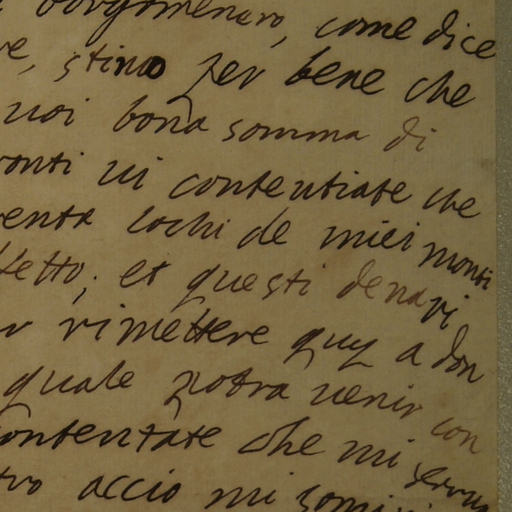 borgomenero, come dice
re, stimo per bene che
uoi bona somma di
onti ui contentiate che
enta lochi de miei monti
etto, et questi denari
r rimettere quy a don
quale potra uenir con
ontentate che mi
tro accio mi